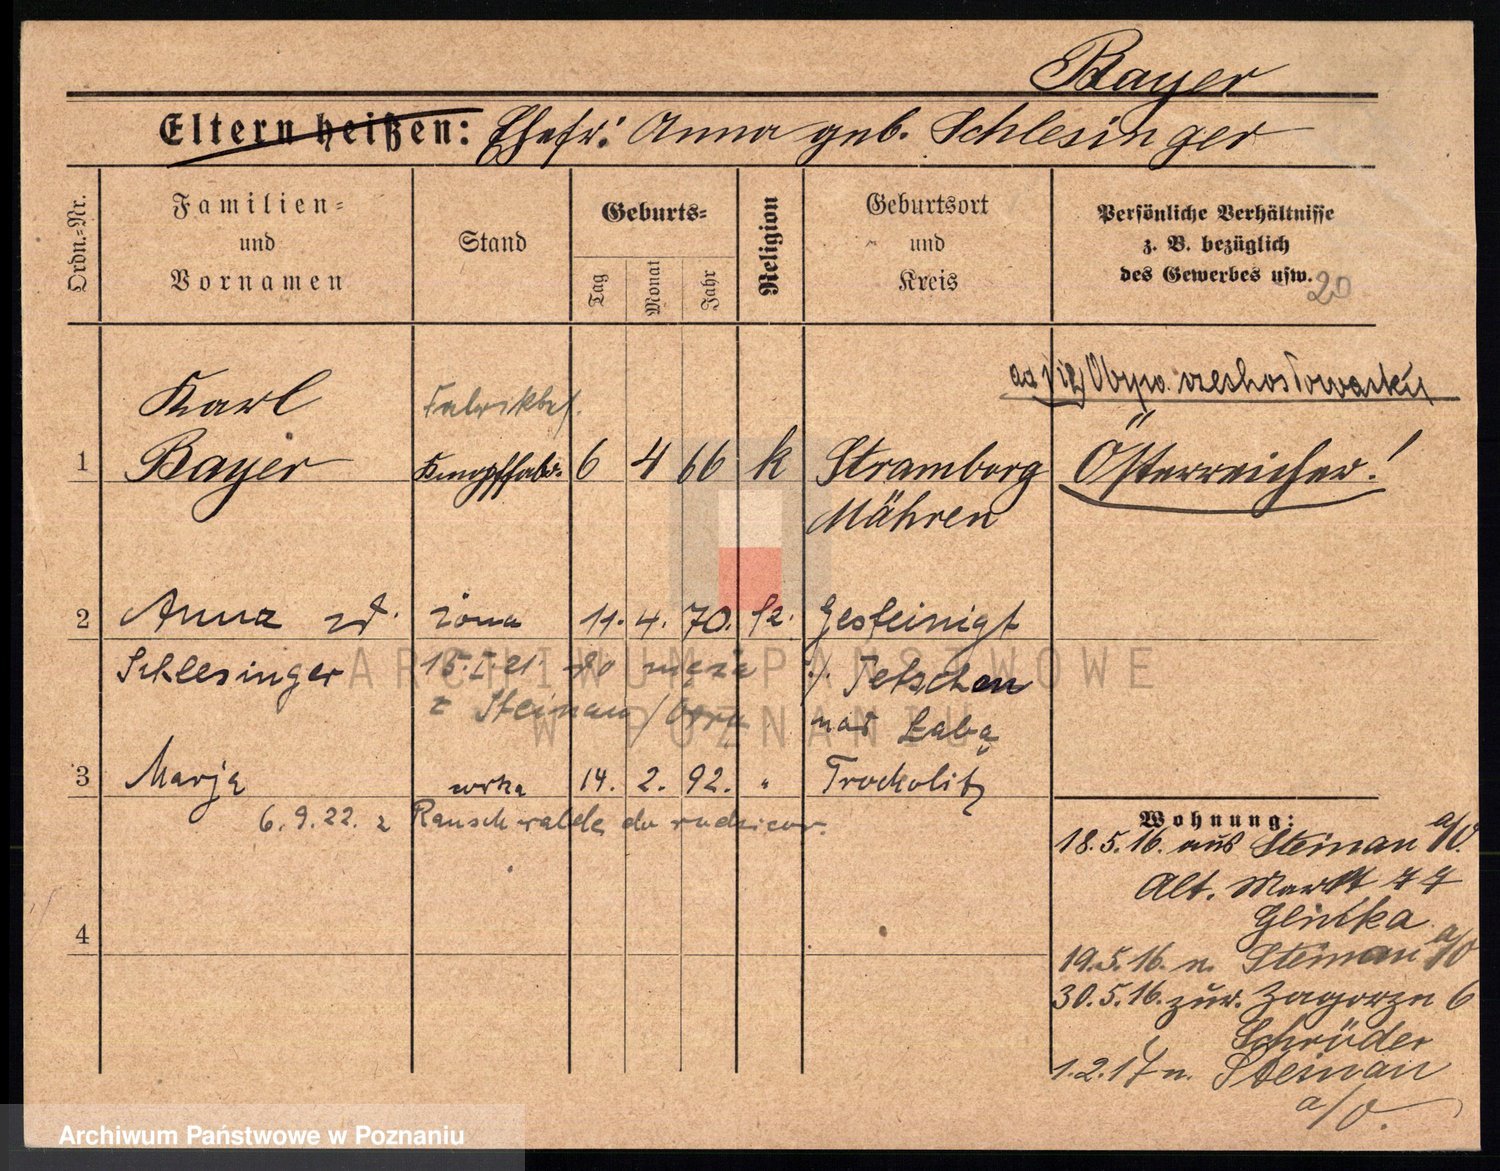 Bayer
Eltern heißen: Ehefr: Anna geb. Schlesinger
Ordn.-Nr.
Familien-
und
Vornamen
Stand
Geburts-
Tag
Monat
Jahr
Religion
Geburtsort
und
Kreis
Persönliche Verhältnisse
z. B. bezüglich
des Gewerbes usw.
20
Obyw. czechosłowacki
1
Karl
Bayer
Fabrikbes.
Knopffabr.
6 4 66 k
Stramberg
Mähren
Österreicher!
2
Anna zd.
Schlesinger
żona
11. 4. 70. k.
Gesteinigt
p. Tetschen
nad Łabą
15.I.21. do męża
z Steinau/Odrą
3
Marja
córka
14. 2. 92. "
6.9.22. z Rauschwalde do rodziców.
4
Wohnung:
18.5.16. aus Steinau a/O.
Alt. Markt 77
Glinka
19.5.16. n. Steinau a/O
30.5.16. zur. Zagorze 6
Schröder
1.2.17 n. Steinau
a/O.
ARCHIWUM PAŃSTWOWE
W POZNANIU
Archiwum Państwowe w Poznaniu